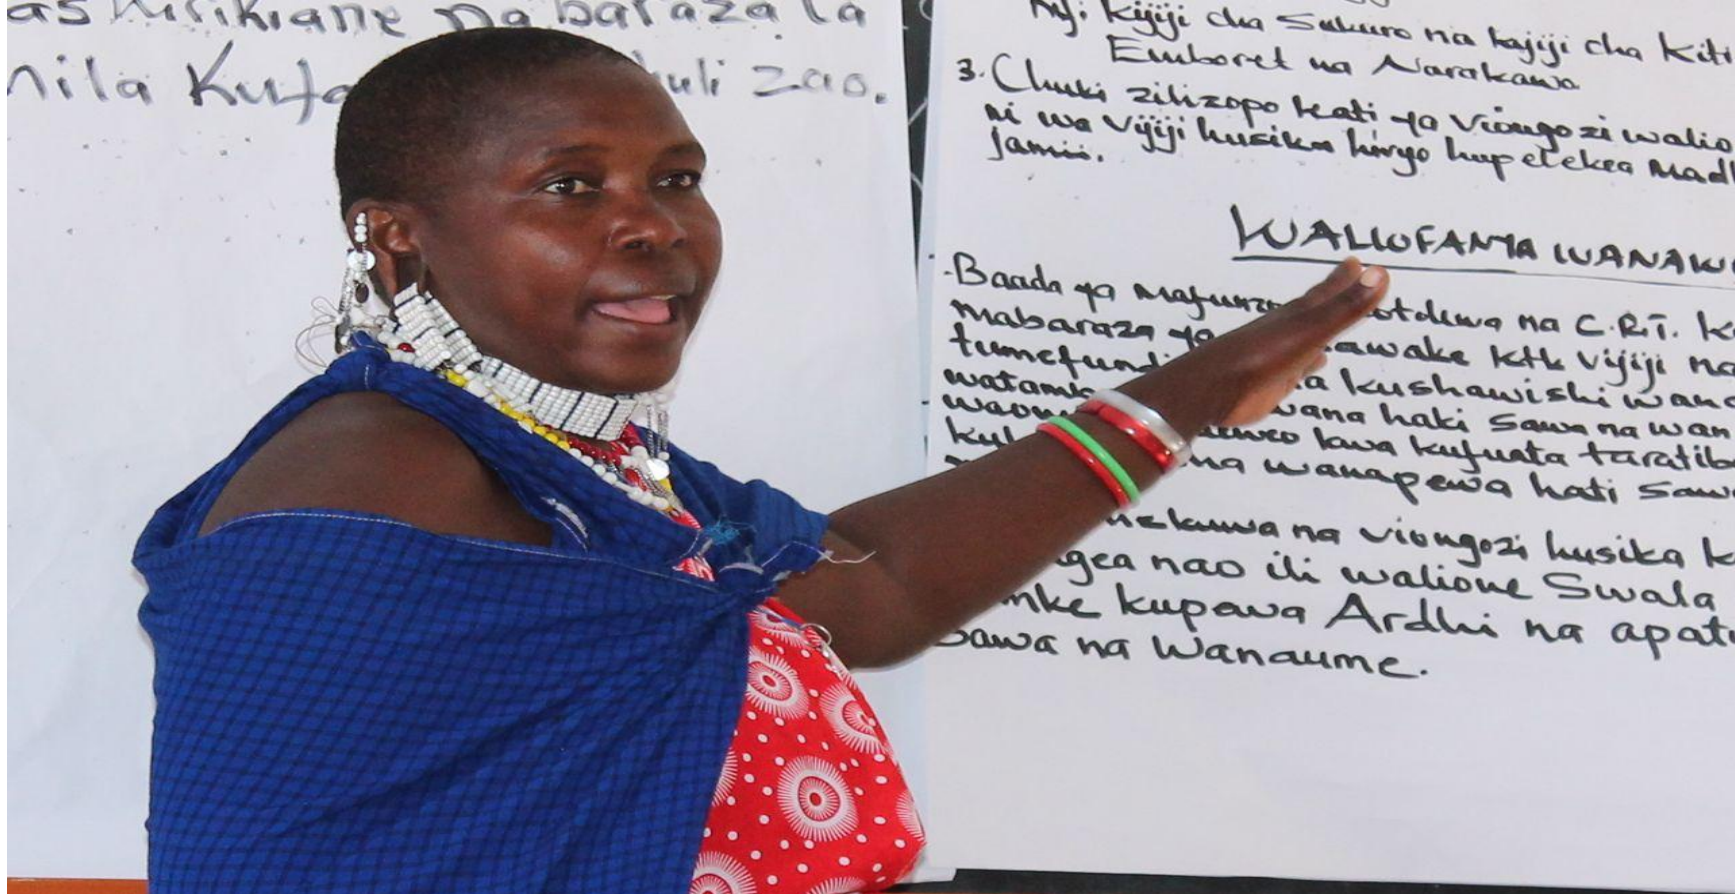 na baraza la
mila Kufa uli zao.
Kijiji cha Sukuro na kijiji cha Kiti
Emboret na Narakawo
3. Chuki zilizopo kati ya viongozi walio
ni wa vijiji husika hivyo hupelekea Mad
Jamii.
WALIOFANYA WANAW
- Baada ya Mafunzo otolewa na C.R.T. K
mabaraza ya awake ktk vijiji na
tumefundi a kushawishi wana
watamb wana haki Sawa na wan
kwa kufuata taratib
na wanapewa hati Saw
mekuwa na viongozi husika k
ngea nao ili walione Swala
mke kupewa Ardhi na apat
Sawa na Wanaume.